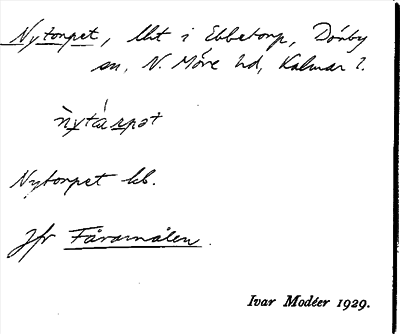 Nytorpet, lht i Ebbetorp, Dörby
sn, N. Möre hd, Kalmar l.
nýtàrpət
Nytorpet kb.
Jfr Fåramålen.
Ivar Modéer 1929.